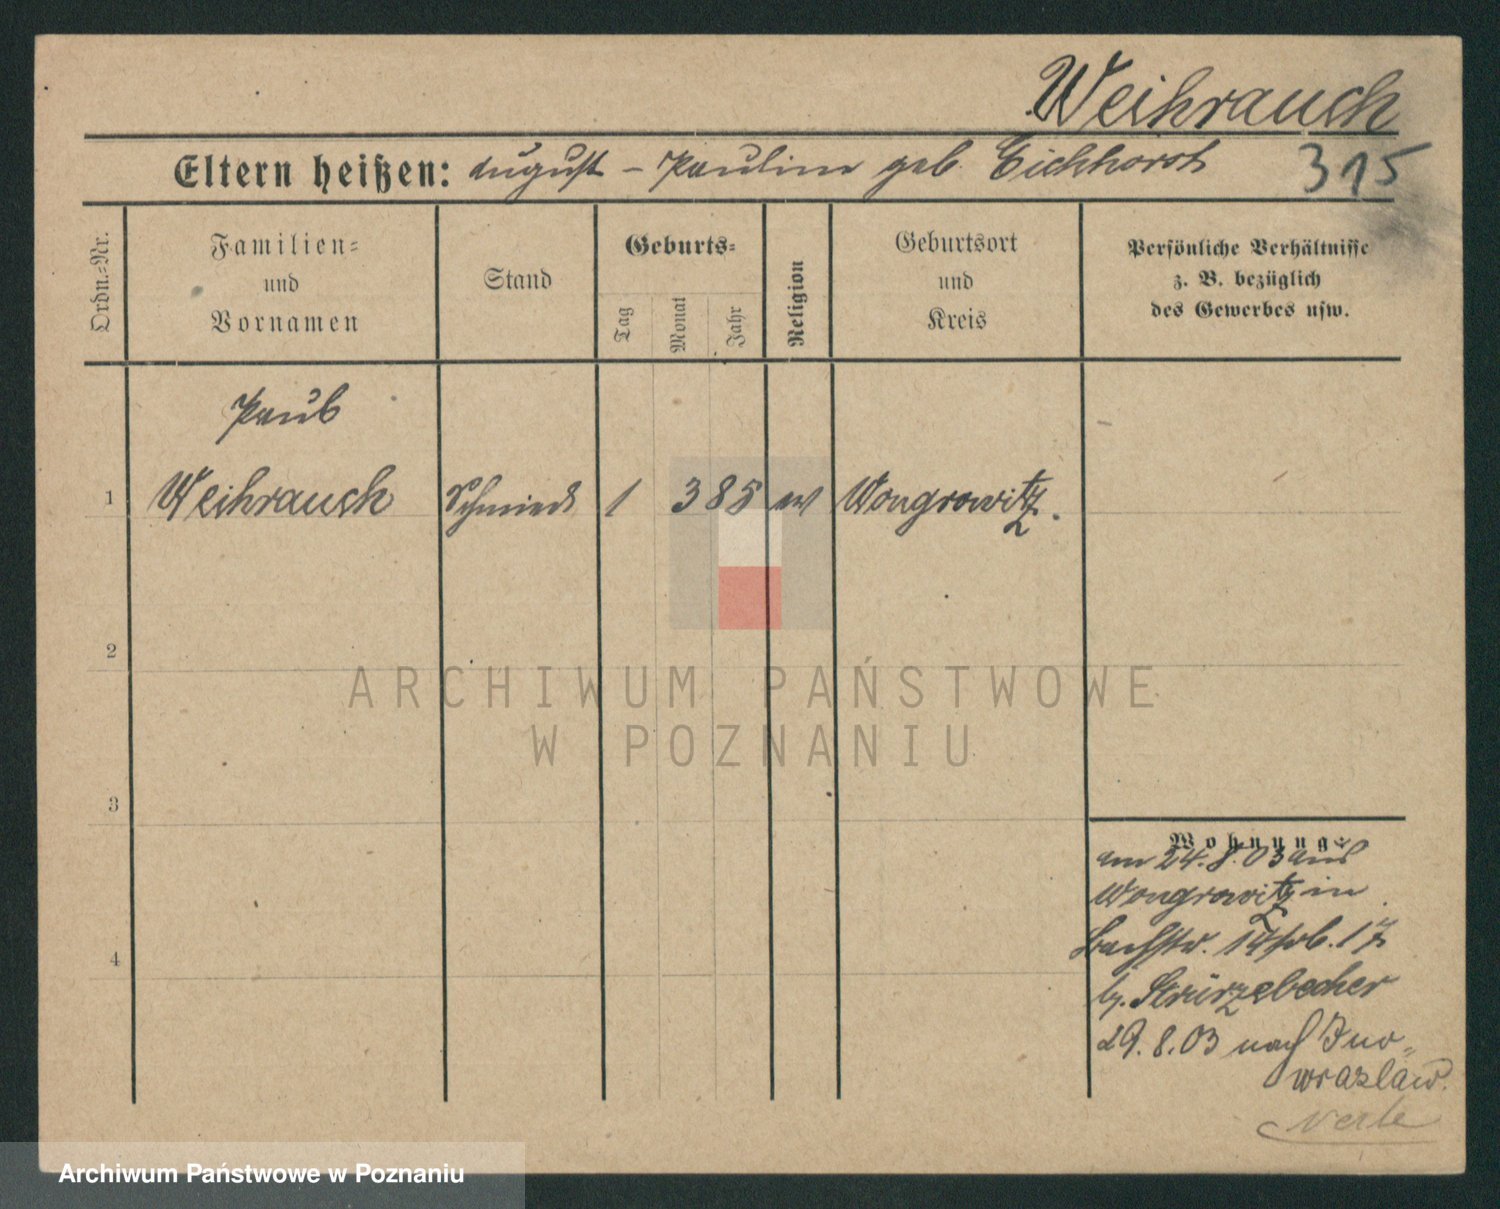 Weihrauch
Eltern heißen: August – Pauline geb. Eichhorst
315
Ordn.=Nr.
Familien=
und
Vornamen
Stand
Geburts=
Tag
Monat
Jahr
Religion
Geburtsort
und
Kreis
Persönliche Verhältnisse
z. B. bezüglich
des Gewerbes usw.
Paul
1 Weihrauch Schmied 1 3 85 ev Wongrowitz.
2
3
4
Wohnung:
am 24.8.03 aus
Wongrowitz in
Bachstr. 14
b. Stürzebecher
29.8.03 nach Ino=
wrazlaw.
ARCHIWUM PAŃSTWOWE
W POZNANIU
Archiwum Państwowe w Poznaniu